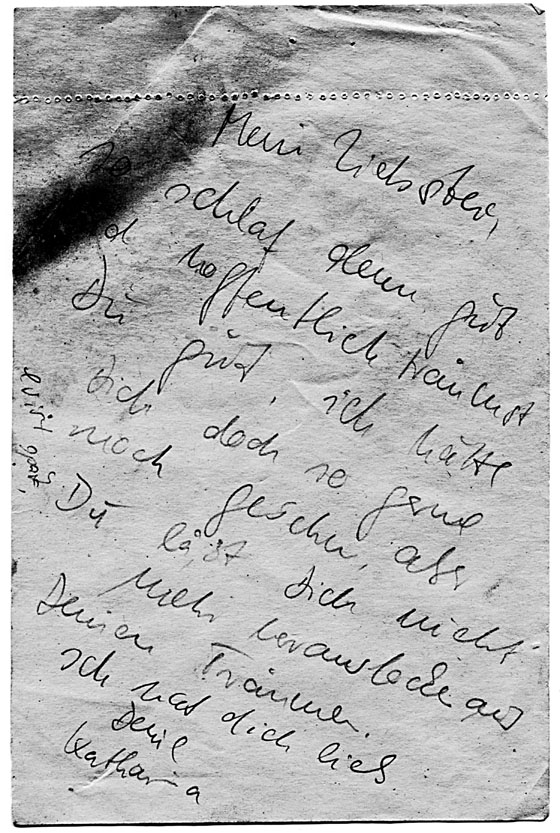 Mein Liebster,
so schlaf denn gut
d hoffentlich träumst
Du gut, ich hätte
Dich doch so gerne
noch gesehen, aber
Du läßt Dich nicht
mehr herauslocke aus
Deinen Träumen.
Ich hab dich lieb
Deine
Katharina